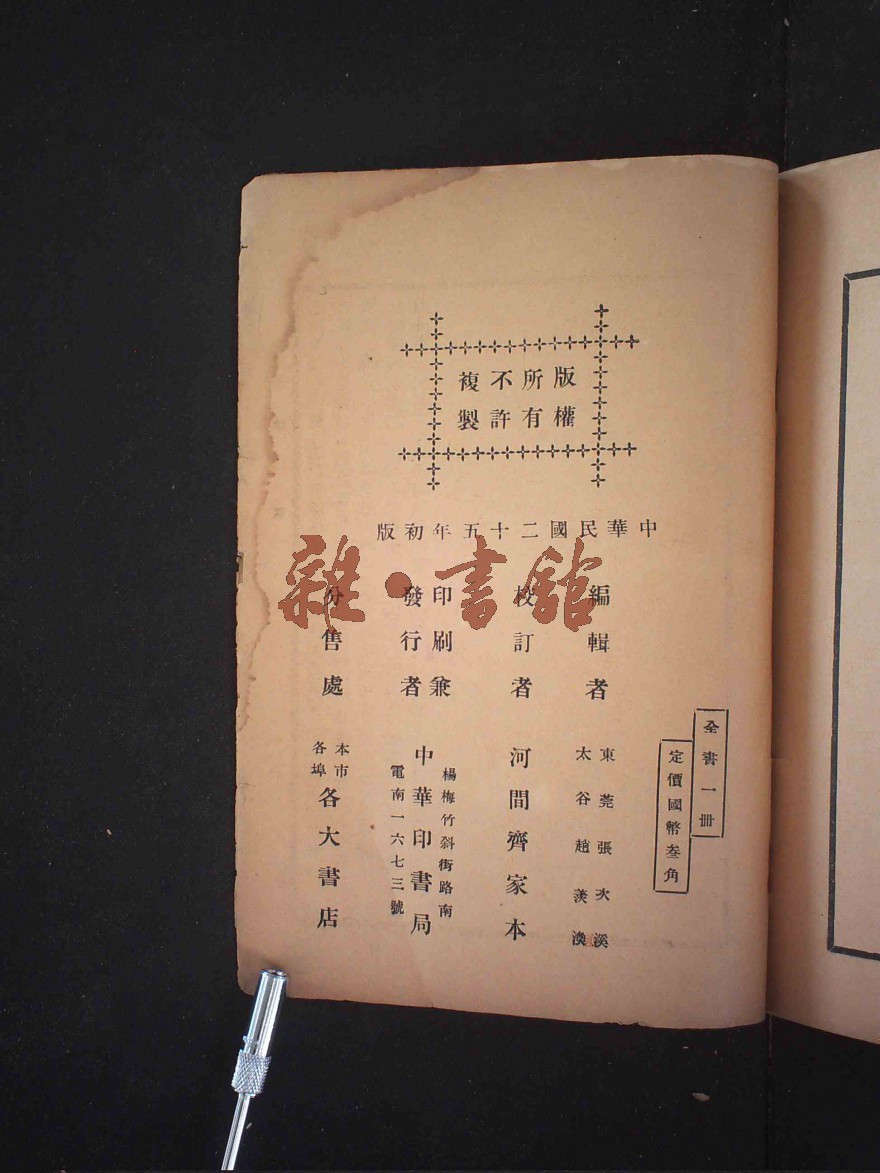 版權所有不許複製
中華民國二十五年初版
全書一册
定價國幣叁角
編輯者
東莞張次溪
太谷趙羨漁
校訂者
河間齊家本
印刷兼
發行者
楊梅竹斜街路南
中華印書局
電南一六七三號
分售處
本市
各埠
各大書店
雜·書館